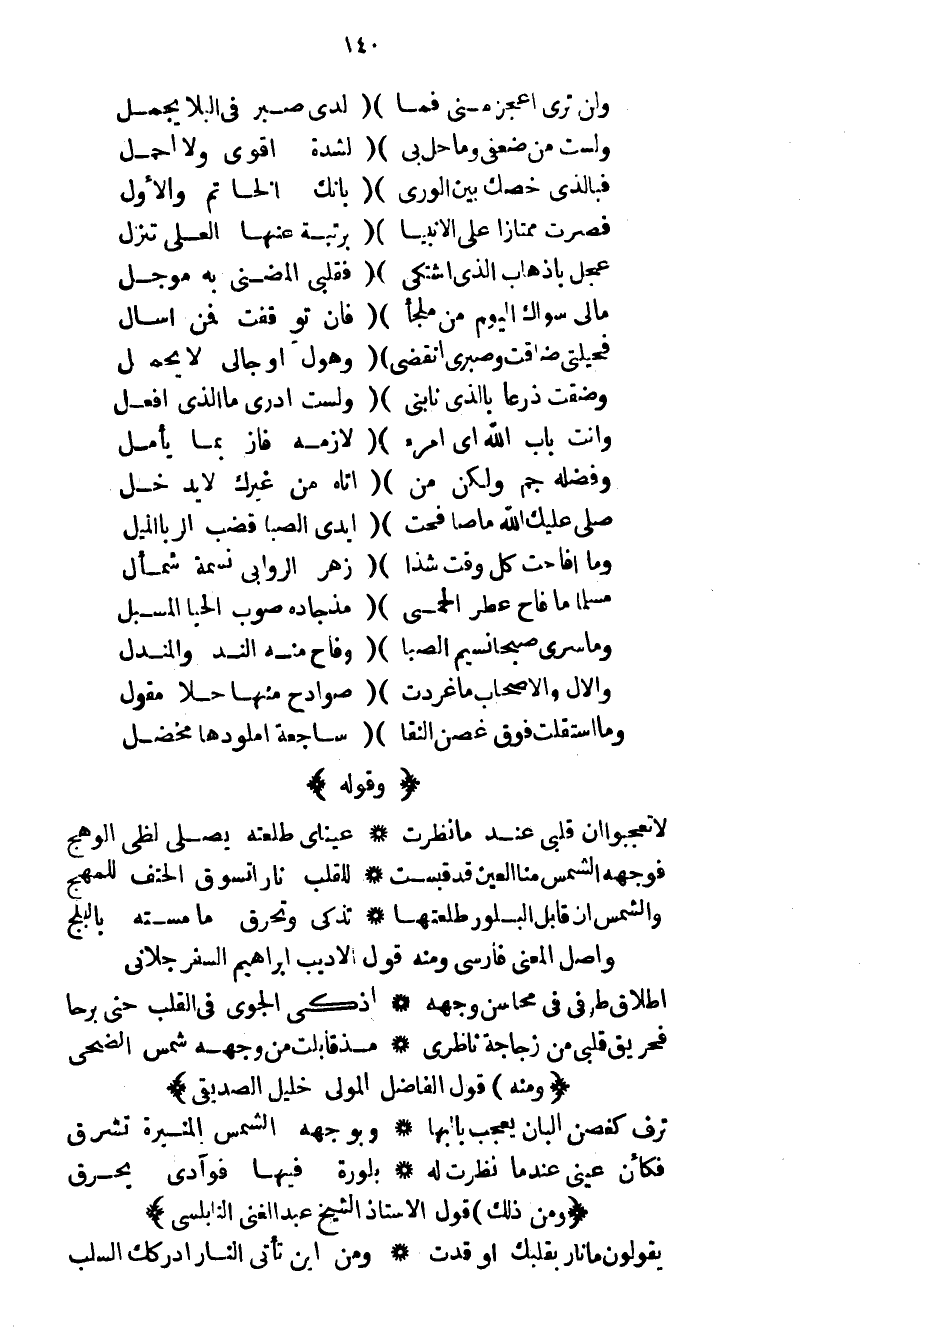 ١٤٠
ولن ترى اعجز منى فما )( لدى صبر فى البلا يجمل
ولست من ضعفى وما حل بى )( لشدة اقوى ولا احمل
فبالذى خصك بين الورى )( بانك الخاتم والأول
فصرت ممتازا على الانبيا )( برتبة عنها العلى تنزل
عجل باذهاب الذى اشتكى )( فقلبى المضنى به موجل
مالى سواك اليوم من ملجأ )( فان توقفت فمن اسال
فحيلتى ضاقت وصبرى انقضى )( وهول اوجالى لا يحمل
وضقت ذرعا بالذى نابنى )( ولست ادرى ما الذى افعل
وانت باب الله اى امرء )( لازمه فاز بما يأمل
وفضله جم ولكن من )( اتاه من غيرك لا يدخل
صلى عليك الله ما صافحت )( ايدى الصبا قضب الربا الميل
وما افاحت كل وقت شذا )( زهر الروابى نسمة شمأل
مسلما ما فاح عطر الحمى )( مذجاده صوب الحيا المسبل
وما سرى صبحا نسيم الصبا )( وفاح منه الند والمندل
والال والاصحاب ما غردت )( صوادح منها حلا مقول
وما استقلت فوق غصن النقا )( ساجعة املودها مخضل
﴿ وقوله ﴾
لا تعجبوا ان قلبى عند ما نظرت * عيناى طلعته يصلى لظى الوهج
فوجهه الشمس منا العين قد قبست * للقلب نارا تسوق الحتف للمهج
والشمس ان قابل البلور طلعتها * تذكى وتحرق ما مسته بالبلج
واصل المعنى فارسى ومنه قول الاديب ابراهيم السفرجلانى
اطلاق طرفى فى محاسن وجهه * اذكى الجوى فى القلب حتى برحا
فحريق قلبى من زجاجة ناظرى * مذ قابلت من وجهه شمس الضحى
﴿ ومنه ) قول الفاضل المولى خليل الصديقى ﴾
ترف كغصن البان يعجب بالبها * وبوجهه الشمس المنيرة تشرق
فكأن عينى عندما نظرت له * بلورة فيها فوآدى يحرق
﴿ ومن ذلك ) قول الاستاذ الشيخ عبد الغنى النابلسى ﴾
يقولون ما نار بقلبك اوقدت * ومن اين تأتى النار ادركك السلب